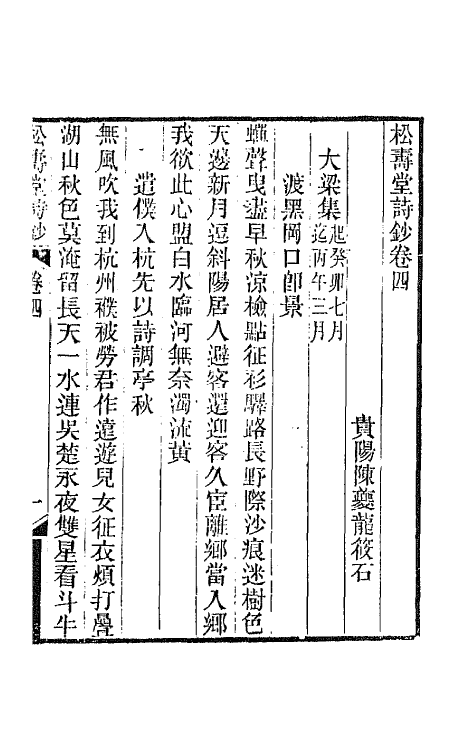 松壽堂詩鈔卷四
貴陽陳夔龍筱石
大梁集起癸卯七月迄丙午三月
渡黑岡口卽景
蟬聲曳盡早秋涼檢點征衫驛路長野際沙痕迷樹色
天邊新月逗斜陽居人避客還迎客久宦離鄉當入鄉
我欲此心盟白水臨河無奈濁流黃
遣僕入杭先以詩調亭秋
無風吹我到杭州襆被勞君作遠遊兒女征衣煩打疊
湖山秋色莫淹留長天一水連吳楚永夜雙星看斗牛
松壽堂詩鈔 卷四 一